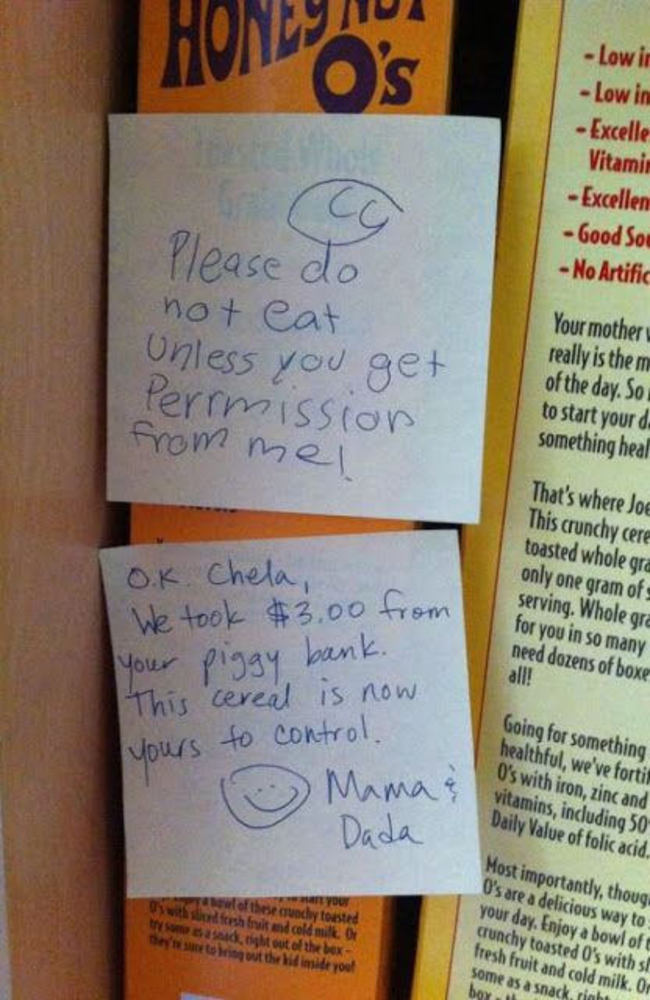 HONEY NUT
O's
Toasted Whole
CC
Please do
not eat
Unless you get
Perrmission
from me!
O.K. Chela,
We took $3.00 from
your piggy bank.
This cereal is now
yours to control.
Mama &
Dada
enjoy a bowl of these crunchy toasted
O's with sliced fresh fruit and cold milk. Or
try some as a snack, right out of the box –
they're sure to bring out the kid inside you!
- Low
- Low
- Excelle
Vitamin
- Excellen
- Good Sou
- No Artific
Your mother
really is the m
of the day. So
to start your d
something heal
That's where Joe
This crunchy cere
toasted whole gra
only one gram of s
serving. Whole gra
for you in so many
need dozens of boxe
all!
Going for something
healthful, we've fortif
O's with iron, zinc and
vitamins, including 50
Daily Value of folic acid.
Most importantly, thoug
O's are a delicious way to
your day. Enjoy a bowl of t
crunchy toasted O's with sl
fresh fruit and cold milk. Or
some as a snack, right
box -